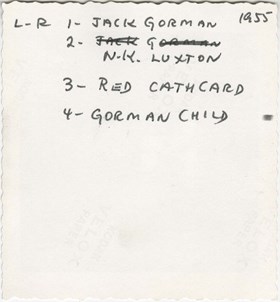 L-R 1- JACK GORMAN 1955
2- JACK GORMAN
N.K. LUXTON
3- RED CATHCARD
4- GORMAN CHILD